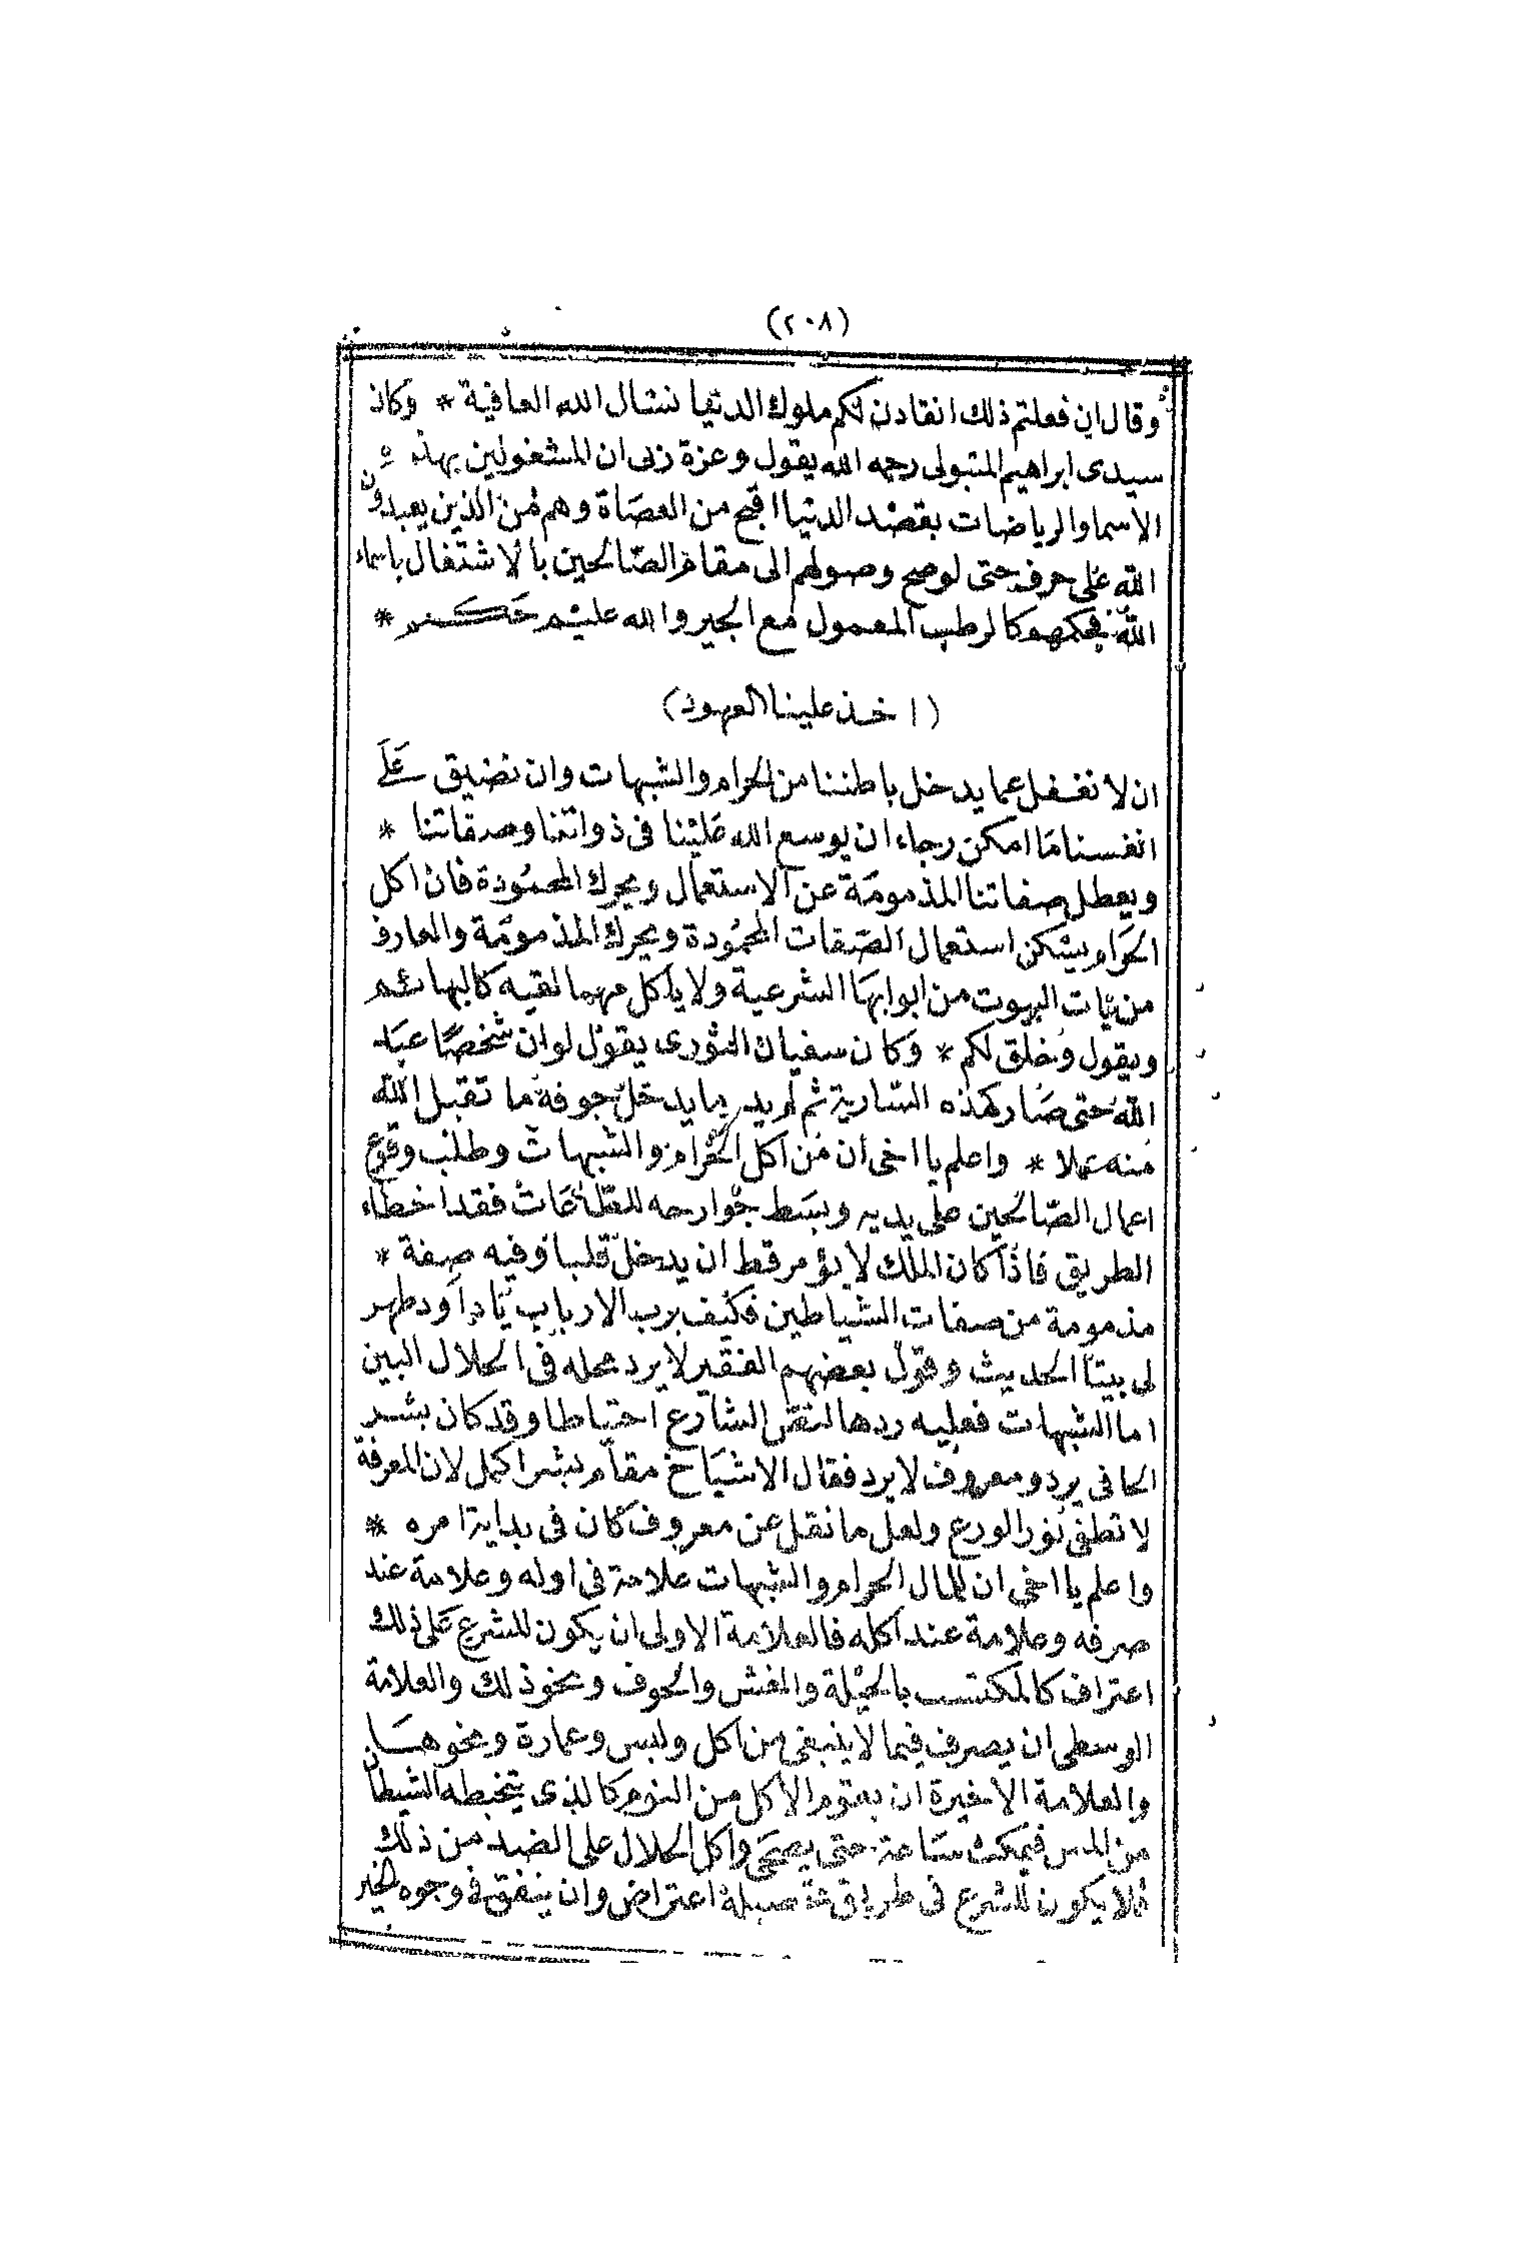 (٢٠٨)
وقال ان فعلتم ذلك انقادن لكم ملوك الدنيا نسئال الله العافية * وكان
سيدى ابراهيم المتبولى رحمه الله يقول وعزة ربى ان المشغولين بهذه
الاسما والرياضات بقصد الدنيا اقبح من العصاة وهم من الذين يعبدون
الله على حرف حتى لو صح وصولهم الى مقام الصالحين بالاشتغال باسماء
الله فحكمهم كالرطب المعمول مع الجير والله عليم حكيم *
(اخذ علينا العهود)
ان لا نغفل عما يدخل باطننا من الحرام والشبهات وان نضيق على
انفسنا ما امكن رجاء ان يوسع الله علينا فى ذواتنا وصدقاتنا *
ويعطل صفاتنا المذمومة عن الاستعمال ويحرك المحمودة فان اكل
الحرام يسكن استعمال الصفات المحمودة ويحرك المذمومة والعارف
من يات البيوت من ابوابها الشرعية ولا ياكل مهما لقيه كالبهائم
ويقول وخلق لكم * وكان سفيان الثورى يقول لو ان شخصا عبد
الله حتى صار كهذه السارية ثم لم يدر ما يدخل جوفه ما تقبل الله
منه عملا * واعلم يا اخى ان من اكل الحرام والشبهات وطلب وقوع
اعمال الصالحين على يديه وبسط جوارحه للطاعات فقد اخطاء
الطريق فاذا كان الملك لا يؤمر قط ان يدخل قلبا وفيه صفة *
مذمومة من صفات الشياطين فكيف برب الارباب يا داود طهر
لى بيتا الحديث وقول بعضهم الفقير لا يرد محله فى الحلال البين
اما الشبهات فعليه ردها لنص الشارع احتياطا وقد كان بشر
الحافى يرد ومعروف لا يرد فقال الاشياخ مقام بشر اكمل لان المعرفة
لا تطفى نور الورع ولعل ما نقل عن معروف كان فى بداية امره *
واعلم يا اخى ان للمال الحرام والشبهات علامة فى اوله وعلامة عند
صرفه وعلامة عند اكله فالعلامة الاولى ان يكون للشرع على ذلك
اعتراف كالمكتسب بالحيلة والغش والخوف ونحو ذلك والعلامة
الوسطى ان يصرف فيما لا ينبغى من اكل ولبس وعمارة ونحوها
والعلامة الاخيرة ان يقوم الاكل من النوم كالذى يتخبطه الشيطان
من المس فيمكث ساعة حتى يصحى واكل الحلال على الضد من ذلك
فلا يكون للشرع فى طريق اعتراض وان ينفق فى وجوه الخير